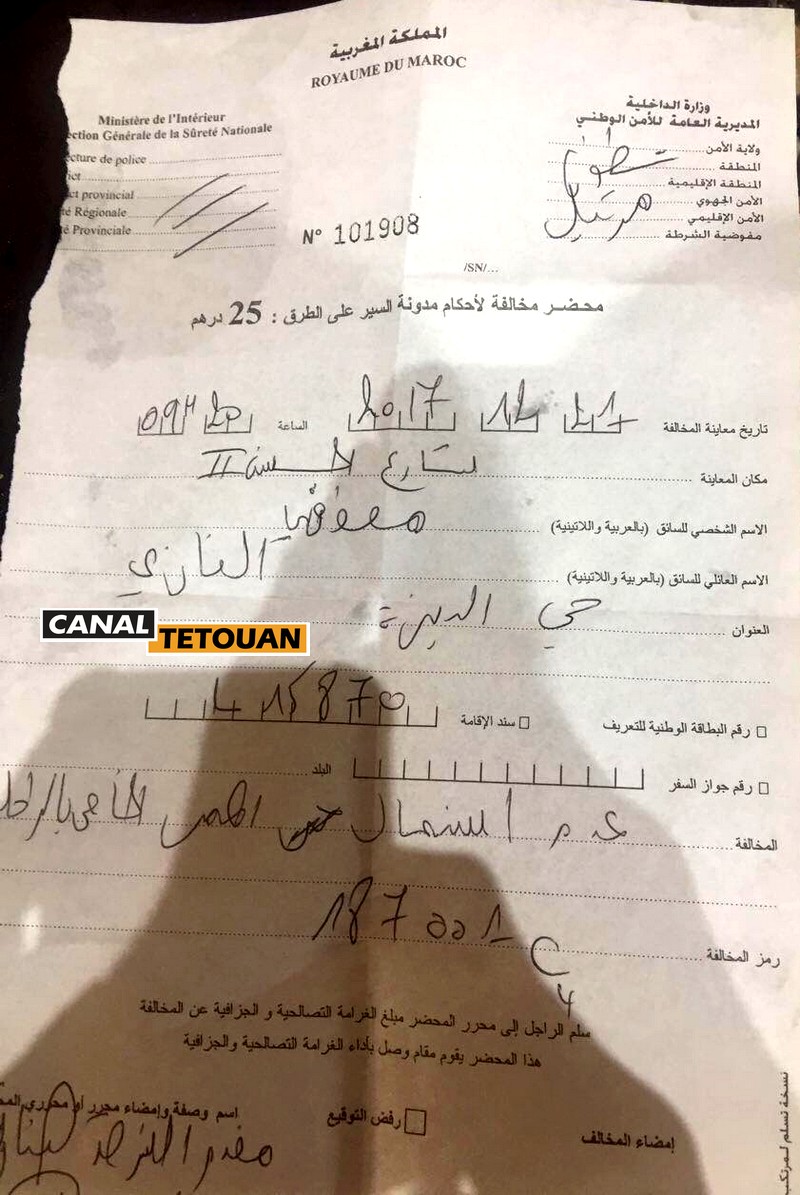 المملكة المغربية
ROYAUME DU MAROC
Ministère de l'Intérieur
ection Générale de la Sûreté Nationale
ecture de police
ict
ct provincial
té Régionale
é Provinciale
وزارة الداخلية
المديرية العامة للأمن الوطني
ولاية الأمن
المنطقة
المنطقة الإقليمية
الأمن الجهوي
الأمن الإقليمي
مفوضية الشرطة
تطوان
مرتيل
N° 101908
/SN/...
محضر مخالفة لأحكام مدونة السير على الطرق : 25 درهم
تاريخ معاينة المخالفة 2017 الساعة
مكان المعاينة شارع الحسن II
الاسم الشخصي للسائق (بالعربية واللاتينية)
الاسم العائلي للسائق (بالعربية واللاتينية)
العنوان حي الديزة
CANAL TETOUAN
رقم البطاقة الوطنية للتعريف سند الإقامة
رقم جواز السفر البلد
المخالفة عدم استعمال الممر الخاص بالراجل
رمز المخالفة
سلم الراجل إلى محرر المحضر مبلغ الغرامة التصالحية و الجزافية عن المخالفة
هذا المحضر يقوم مقام وصل بأداء الغرامة التصالحية والجزافية
اسم وصفة وإمضاء محرر أو محرري
رفض التوقيع
إمضاء المخالف
نسخة تسلم لمرتكب